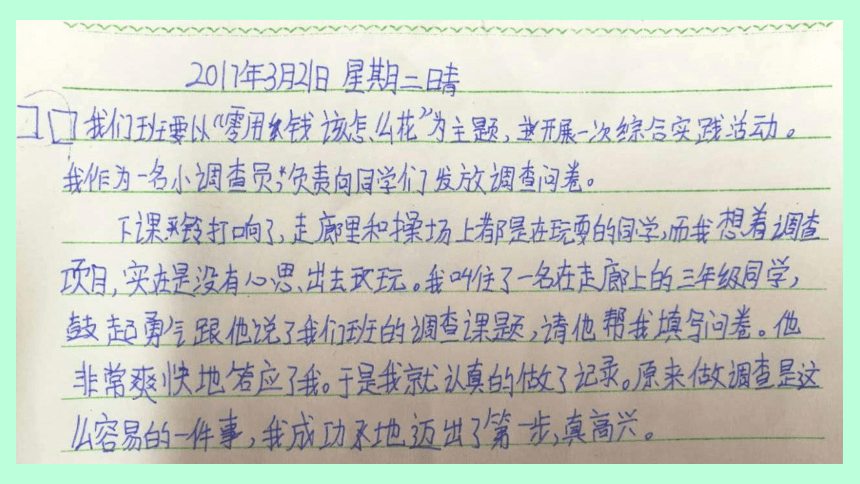 2017年3月21日 星期二晴
我们班要以“零用钱该怎么花”为主题，开展一次综合实践活动。
我作为一名小调查员，负责向同学们发放调查问卷。
下课铃打响了，走廊里和操场上都是在玩耍的同学，而我想着调查
项目，实在是没有心思出去玩。我叫住了一名在走廊上的三年级同学，
鼓起勇气跟他说了我们班的调查课题，请他帮我填写问卷。他
非常爽快地答应了我。于是我就认真的做了记录。原来做调查是这
么容易的一件事，我成功地迈出了第一步，真高兴。